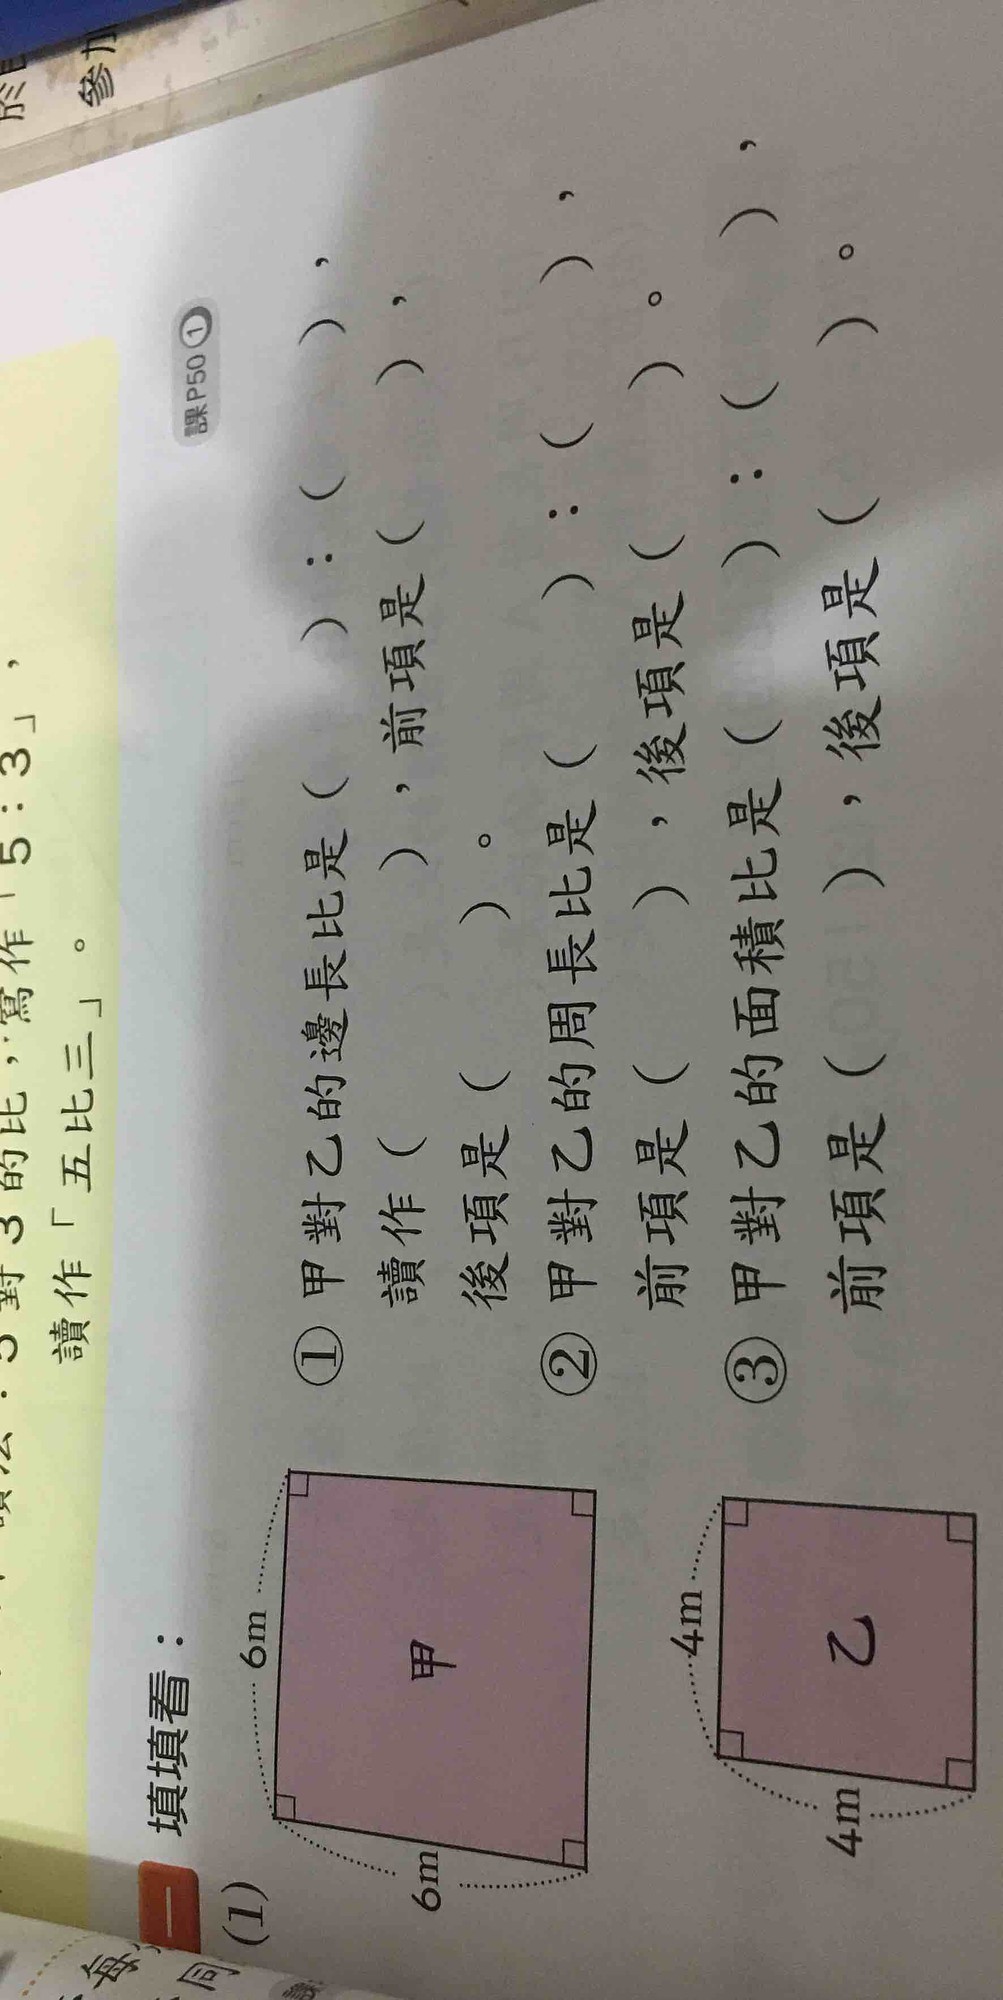 參加
對3的比，寫作「5：3」，
讀作「五比三」。
課P50①
一 填填看：
(1)
6m
6m
甲
①甲對乙的邊長比是（ ）：（ ），
讀作（ ），前項是（ ），
後項是（ ）。
②甲對乙的周長比是（ ）：（ ），
前項是（ ），後項是（ ）。
4m
4m
乙
③甲對乙的面積比是（ ）：（ ），
前項是（ ），後項是（ ）。
每
同